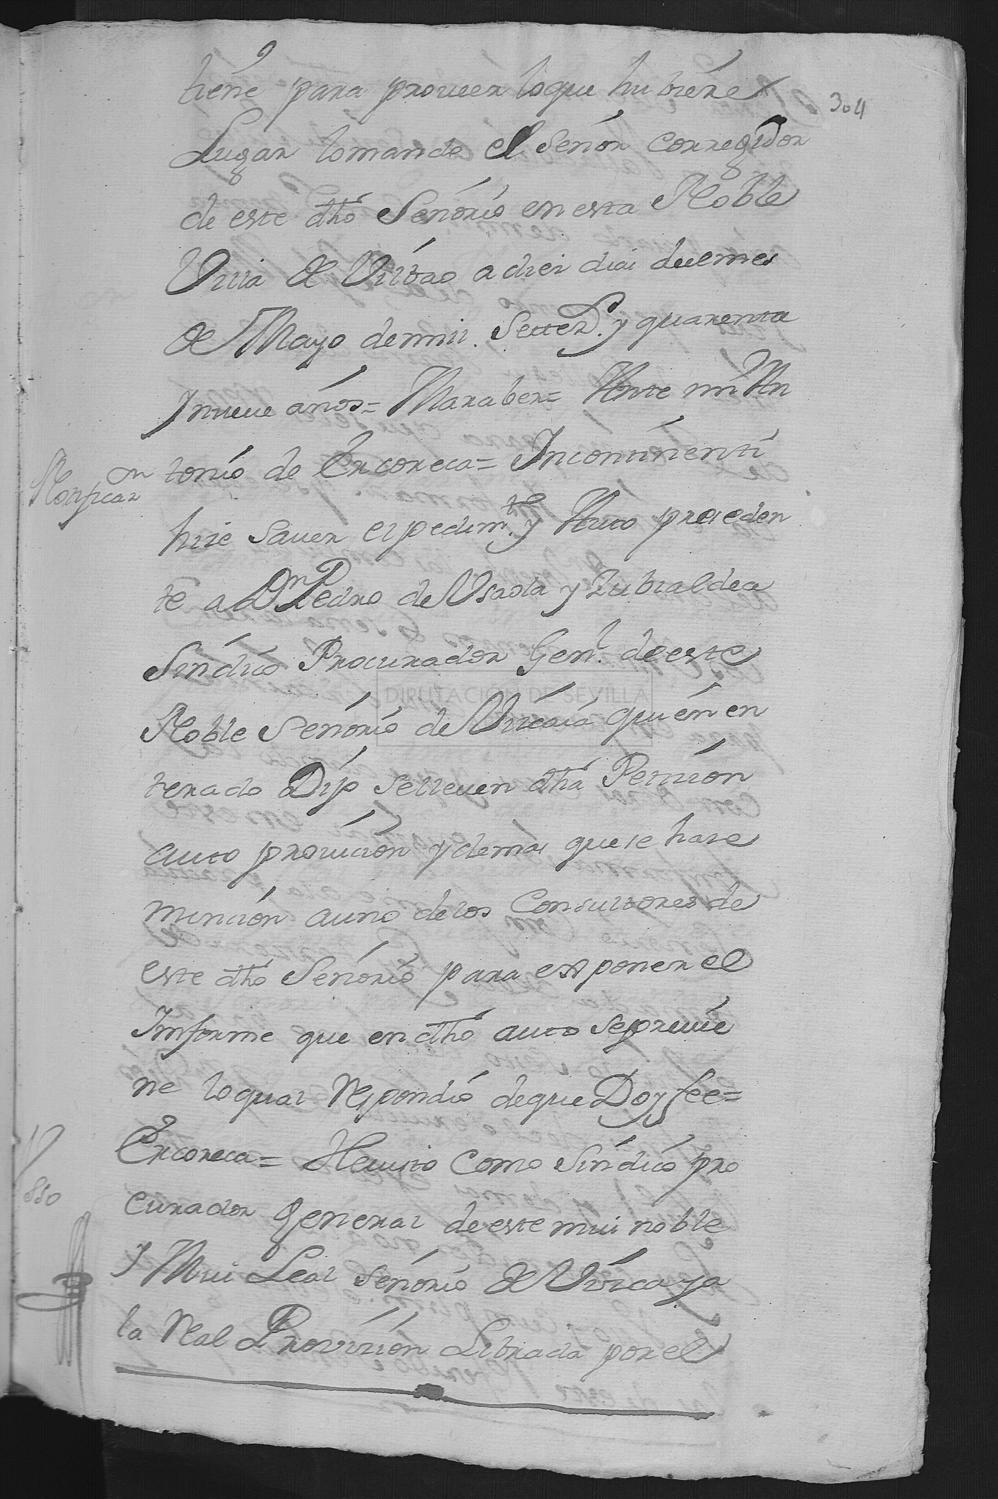 304
tiene para proveer loque hubiere
Lugar lo mando el señor corregidor
de este dho Señorio en esta Noble
Villa de Vilbao a diez dias de el mes
de Mayo de mill Settezs. y quarenta
y nueve años = Maraber = Ante mi An
Notificazon
tonio de Ercoreca = Incontinenti
hize saver el pedimto. y Auto preceden
te a Dn Pedro de Usaola y Zubialdea
Sindico Procurador Genl. de este
Noble Señorio de Vizcaia quien en
terado Dijo se lleven dha Petizion
auto provicion y demas que se haze
mencion a uno de los Consultores de
este dho Señorio para exponer el
Informe que en dho auto se previe
ne lo qual Respondio de que Doy fee =
Ercoreca = He visto como Sindico pro
850
curador general de este mui noble
y Mui Leal Señorio de Vizcaya
la Real Provizion Librada por el
DIPUTACIÓN DE SEVILLA